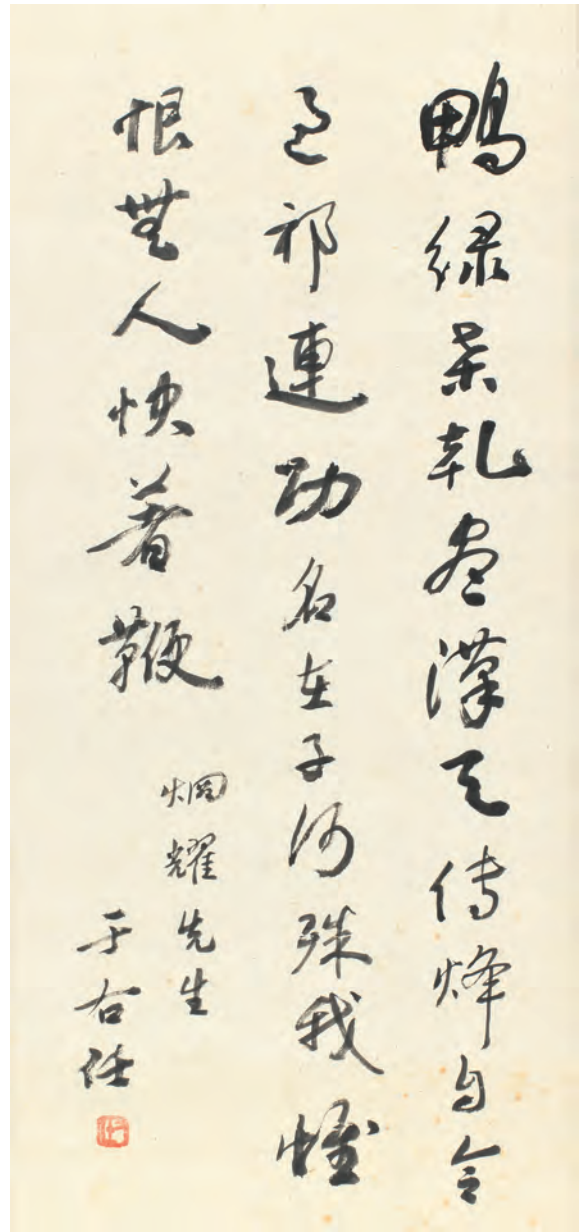 鴨綠桑乾盡漢天傳烽自合
過祁連功名在子何殊我惟
恨無人快著鞭
炯耀先生
于右任